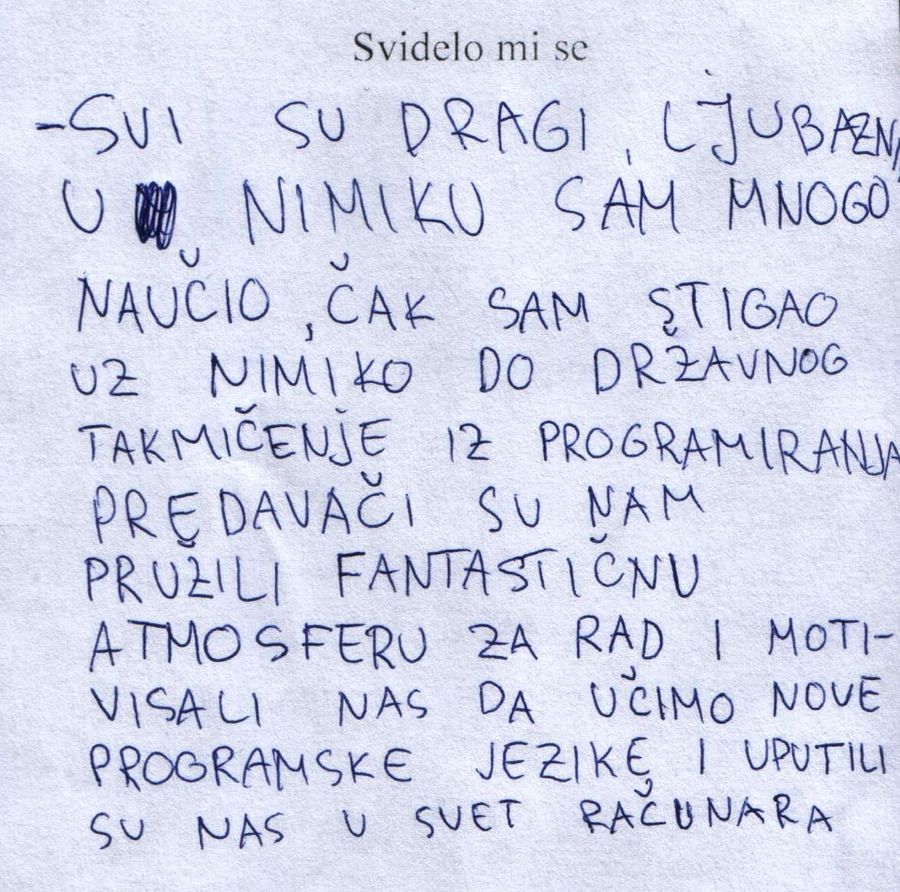 Svidelo mi se
-SVI SU DRAGI, LJUBAZNI,
U NIMIKU SAM MNOGO
NAUČIO, ČAK SAM STIGAO
UZ NIMIKO DO DRŽAVNOG
TAKMIČENJE IZ PROGRAMIRANJA
PREDAVAČI SU NAM
PRUŽILI FANTASTIČNU
ATMOSFERU ZA RAD I MOTI-
VISALI NAS DA UČIMO NOVE
PROGRAMSKE JEZIKE I UPUTILI
SU NAS U SVET RAČUNARA